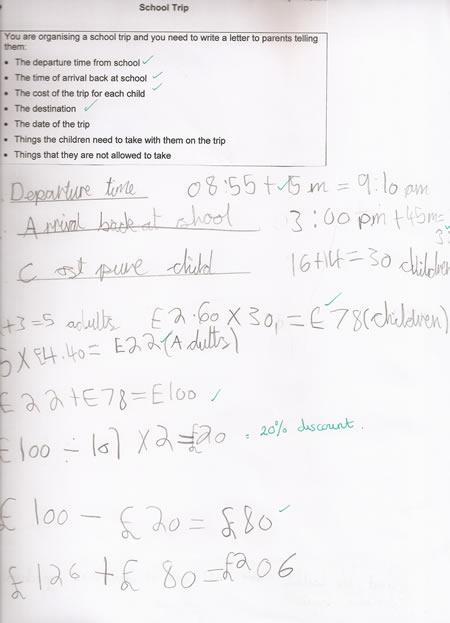 School Trip
You are organising a school trip and you need to write a letter to parents telling
them:
• The departure time from school ✓
• The time of arrival back at school ✓
• The cost of the trip for each child ✓
• The destination ✓
• The date of the trip
• Things the children need to take with them on the trip
• Things that they are not allowed to take
Departure time 08:55 + 15 m = 9:10 pm
Arrival back at shool 3:00 pm + 45m =
3:
Cost pure child 16+14 = 30 children
+3=5 adults £2.60 x 30p = £78 (children)
5 x £4.40 = £22 (Adults)
£22 + £78 = £100 ✓
£100 ÷ 10 x 2 = £20 = 20% discount.
£100 - £20 = £80 ✓
£126 + £80 = £206